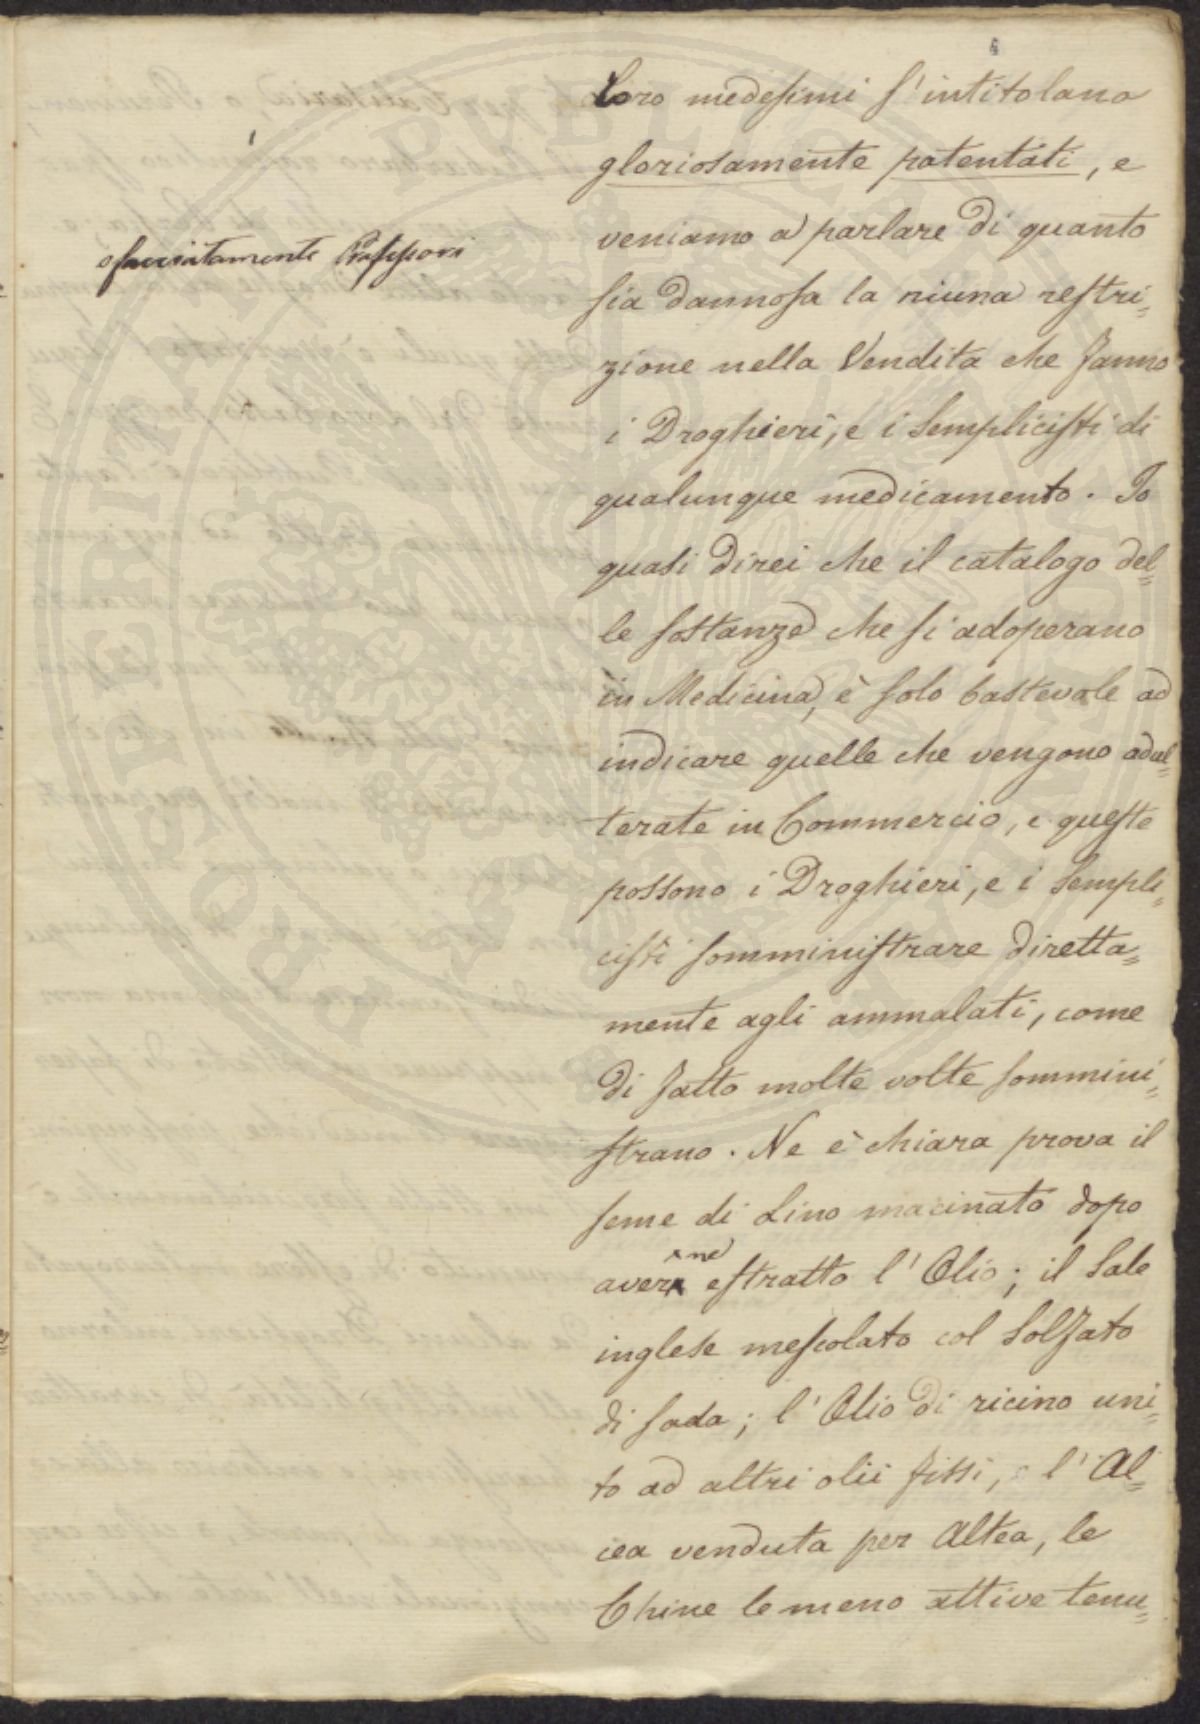 Loro medesimi s'intitolano
gloriosamente patentati, e
veniamo a parlare di quanto
sfacciatamente Professori
sia dannosa la niuna restri=
zione nella Vendita che fanno
i Droghieri, e i Semplicisti di
qualunque medicamento. Io
quasi direi che il catalogo del=
le sostanze che si adoperano
in Medicina, è solo bastevole ad
indicare quelle che vengono adul=
terate in Commercio, e queste
possono i Droghieri, e i Sempli=
cisti somministrare diretta=
mente agli ammalati, come
di fatto molte volte sommini=
strano. Ne è chiara prova il
seme di Lino macinato dopo
averne estratto l'Olio; il Sale
inglese mescolato col Solfato
di soda; l'Olio di ricino uni=
to ad altri olii fissi, e l'Al=
cea venduta per Altea, le
Chine le meno attive tenu=